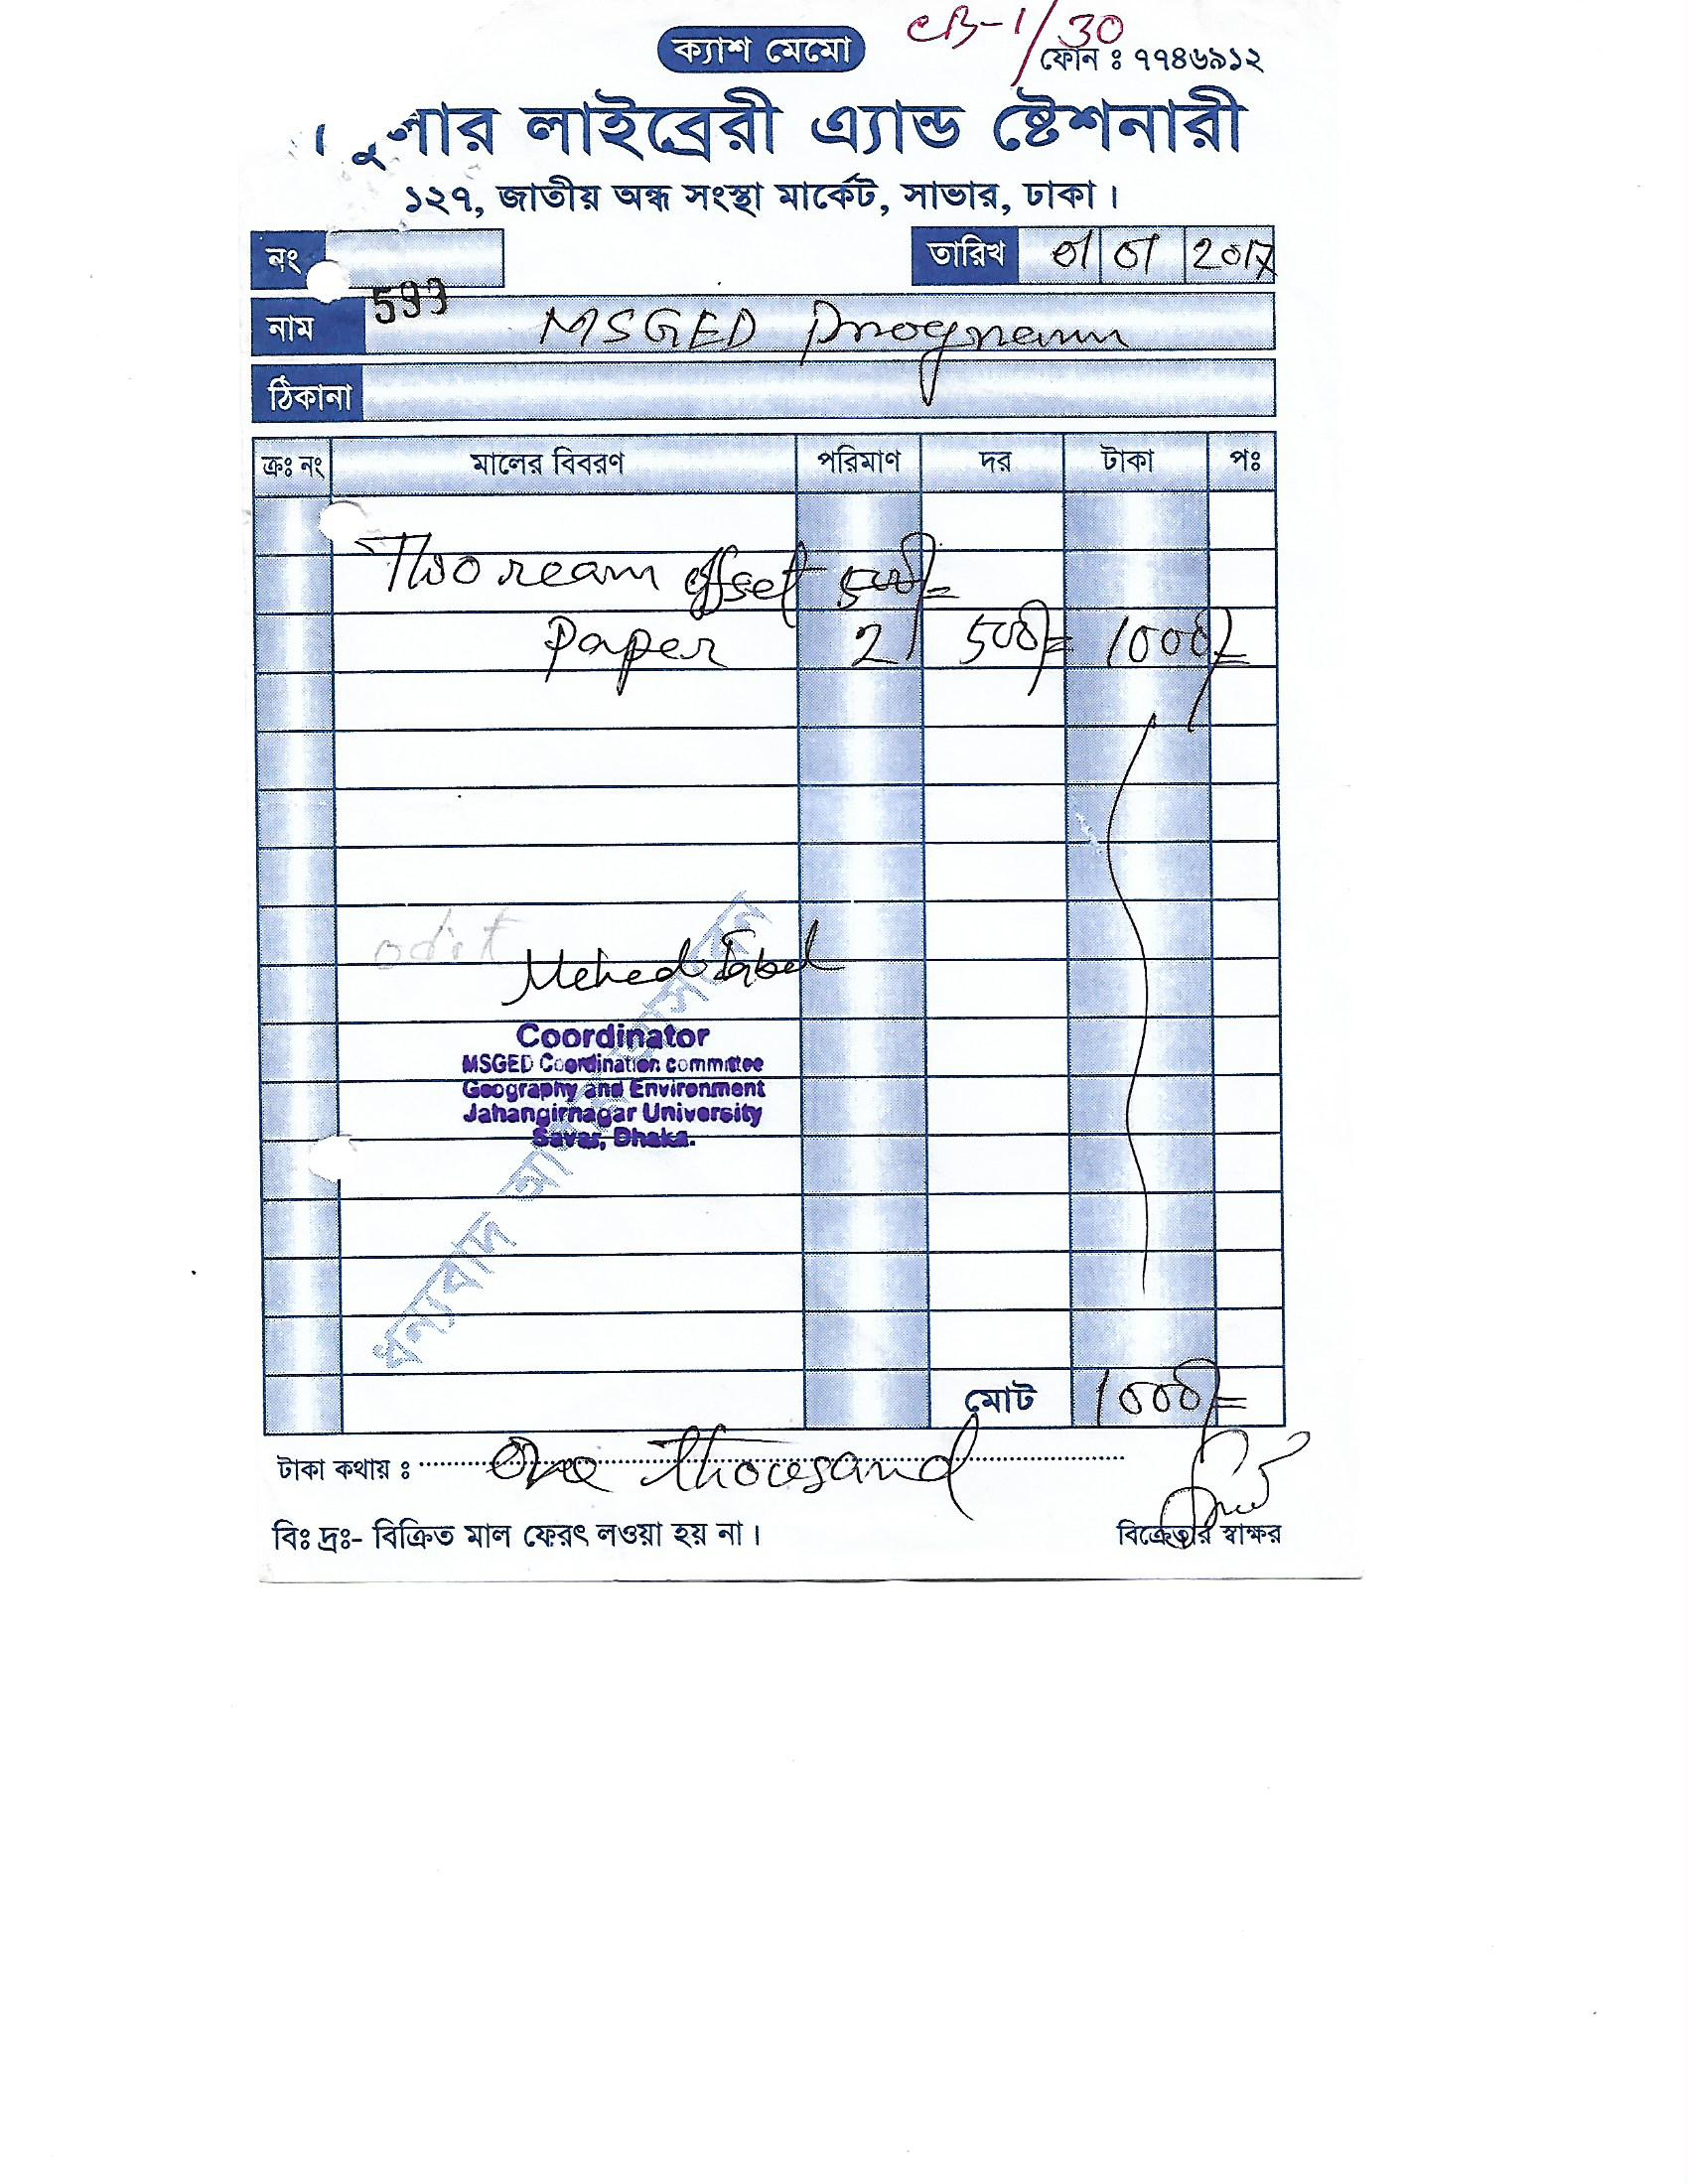 CB-1/30
ক্যাশ মেমো
ফোন ঃ ৭৭৪৬৯১২
লাইব্রেরী এ্যান্ড ষ্টেশনারী
১২৭, জাতীয় অন্ধ সংস্থা মার্কেট, সাভার, ঢাকা।
নং 593
তারিখ 01 01 2017
নাম MSGED Program
ঠিকানা
ক্রঃ নং মালের বিবরণ পরিমাণ দর টাকা পঃ
Two ream offset 500/=
Paper 2 500/= 1000/=
Coordinator
MSGED Coordination committee
Geography and Environment
Jahangirnagar University
Savar, Dhaka.
ধন্যবাদ
মোট 1000/=
টাকা কথায় ঃ One thousand
বিঃ দ্রঃ- বিক্রিত মাল ফেরৎ লওয়া হয় না।
বিক্রেতার স্বাক্ষর